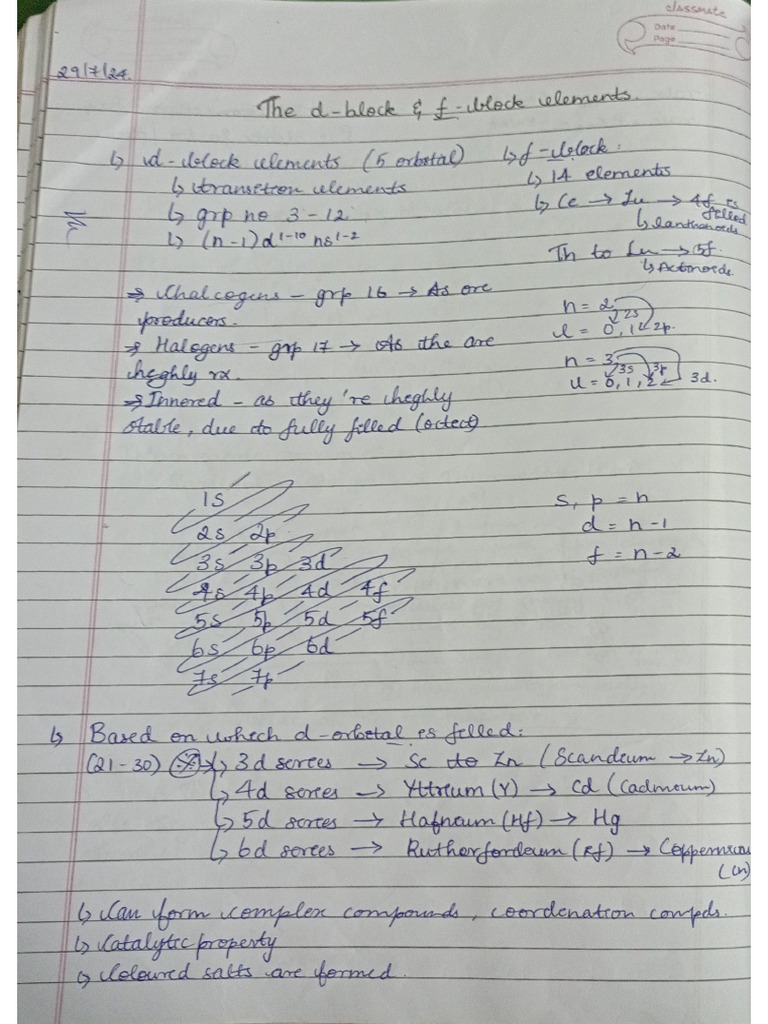 classmate
Date
Page
29/7/24.
The d-block & f-block elements.
↳ d-block elements (5 orbital)
↳ transition elements
↳ grp no 3-12
↳ (n-1)d¹⁻¹⁰ ns¹⁻²
↳ f-block:
↳ 14 elements
↳ Ce → Lu → 4f is filled
↳ lanthanoids
Th to Lu → 5f.
↳ Actinoids.
⇒ Chalcogens - grp 16 → As ore
producers.
⇒ Halogens - grp 17 → As the are
highly rx.
⇒ Innered - as they're highly
stable, due to fully filled (octect)
n = 2
2s
l = 0, 1 2p.
n = 3
3s 3p
l = 0, 1, 2 3d.
1s
2s 2p
3s 3p 3d
4s 4p 4d 4f
5s 5p 5d 5f
6s 6p 6d
7s 7p
s, p = n
d = n-1
f = n-2
↳ Based on which d-orbital is filled:
(21-30) ↳ 3d series → Sc to Zn (Scandium → Zn)
↳ 4d series → Yttrium (Y) → Cd (Cadmium)
↳ 5d series → Hafnium (Hf) → Hg
↳ 6d series → Rutherfordium (Rf) → Coppernicium
(Cn)
↳ Can form complex compounds, coordination compds.
↳ Catalytic property
↳ Coloured salts are formed.